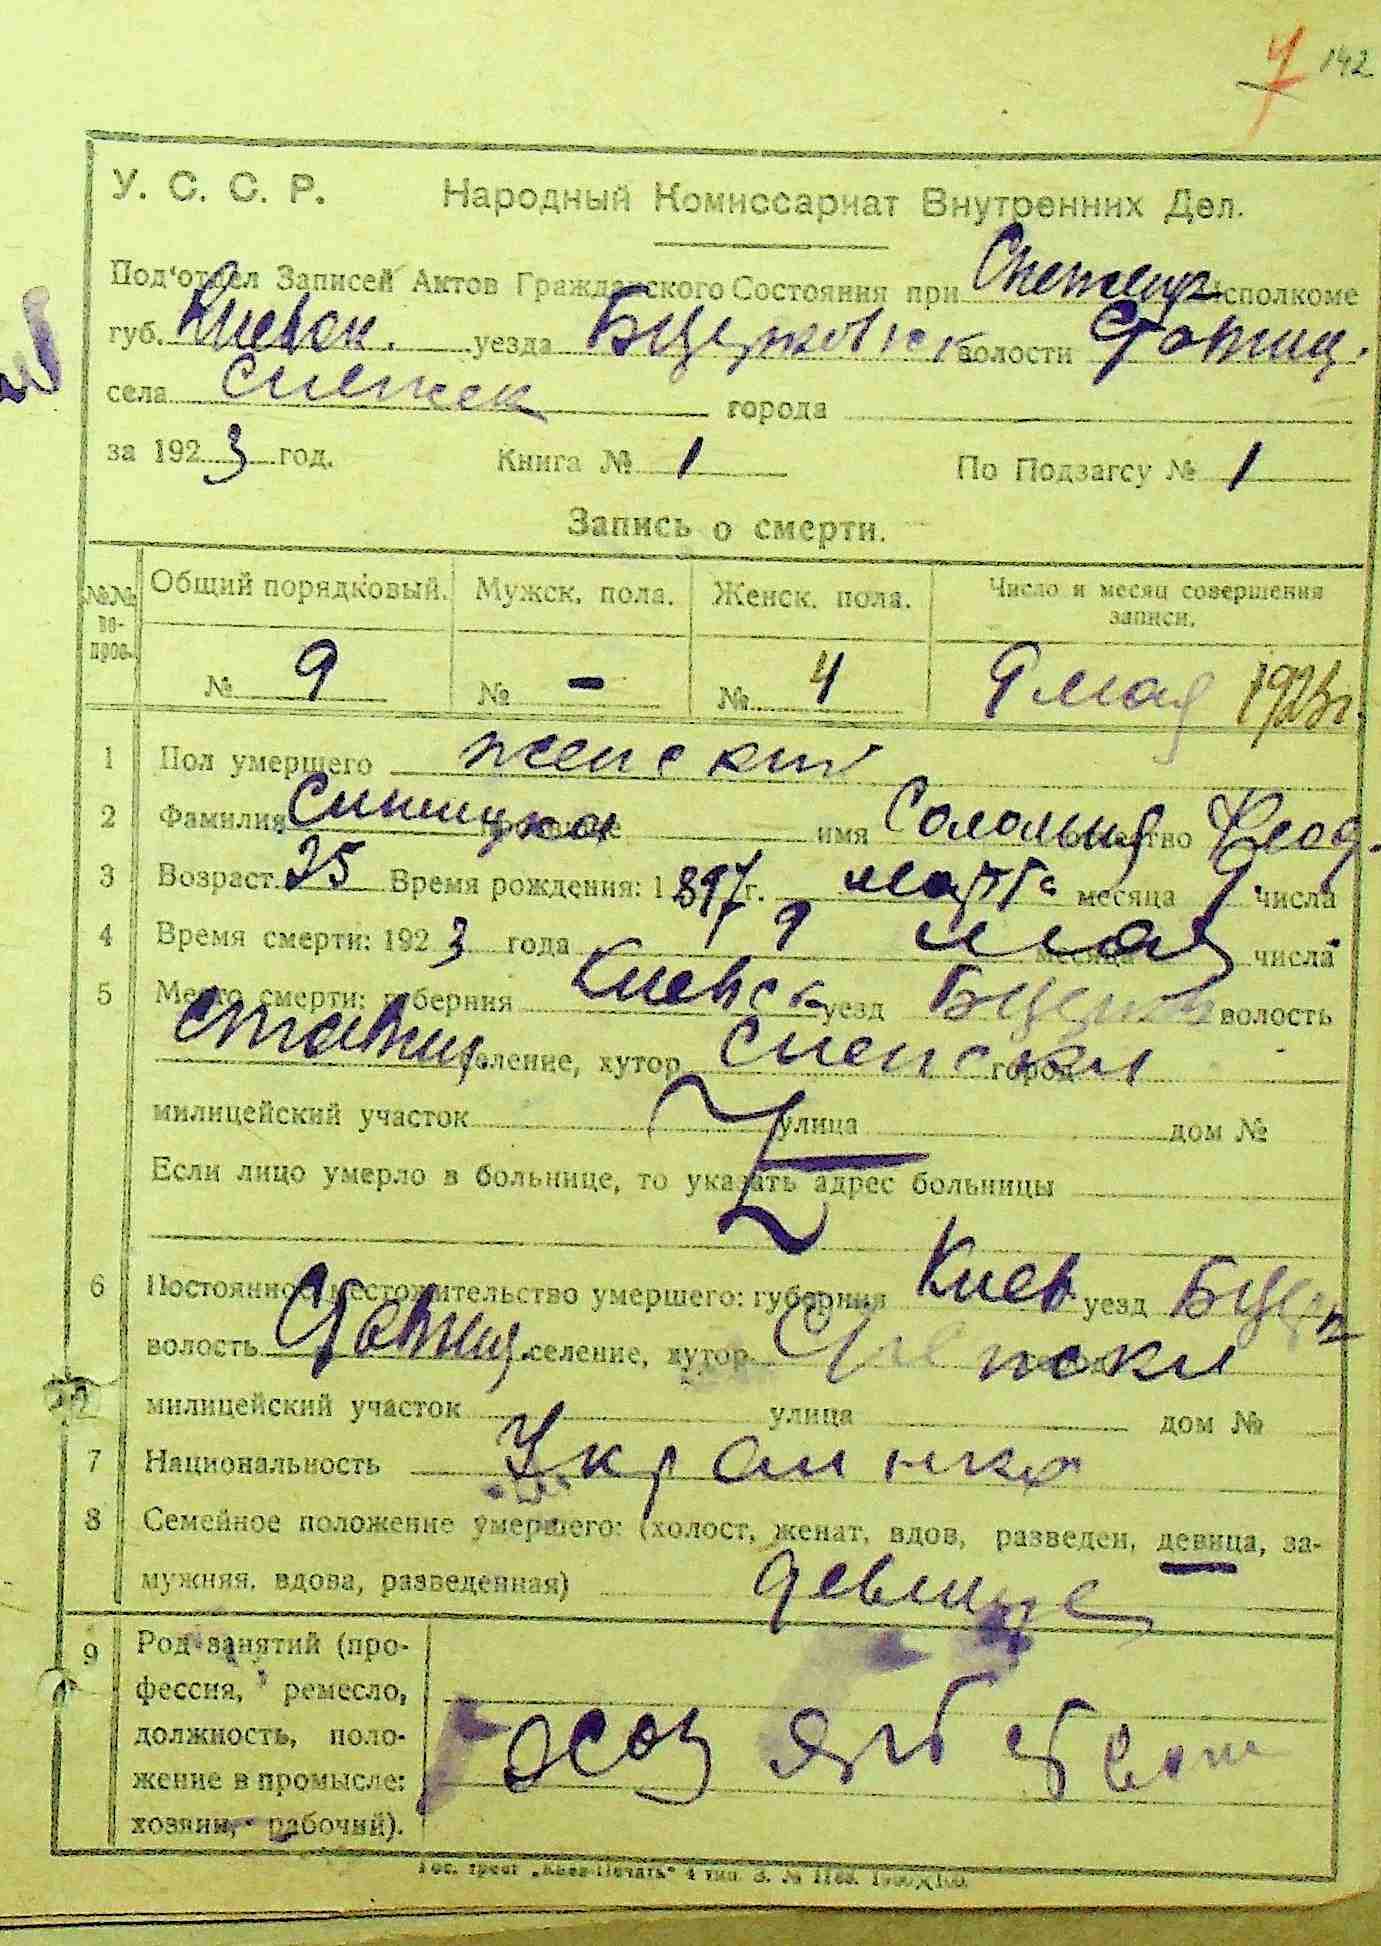 142
У. С. С. Р. Народный Комиссариат Внутренних Дел.
Под'отдел Записей Актов Гражданского Состояния при Исполкоме
губ. Киевск. уезда Бцерковск волости Ставищ.
села города
за 1923 год. Книга № 1 По Подзагсу № 1
Запись о смерти.
№№ во-прос. Общий порядковый. Мужск. пола. Женск. пола. Число и месяц совершения записи.
№ 9 № - № 4 9 мая 1923 г.
1 Пол умершего женский
2 Фамилия имя Соломия отчество Феод.
3 Возраст 25 Время рождения: 1897 г. марта месяца числа
4 Время смерти: 1923 года 9 мая месяца числа
5 Место смерти: губерния Киевск уезд Бцерков волость
Ставищ. селение, хутор город
милицейский участок улица дом №
Если лицо умерло в больнице, то указать адрес больницы
6 Постоянное местожительство умершего: губерния Киев уезд Бцерк
волость Ставищ. селение, хутор
милицейский участок улица дом №
7 Национальность Украинка
8 Семейное положение умершего: (холост, женат, вдов, разведен, девица, за-
мужняя, вдова, разведенная) девица
9 Род занятий (про-
фессия, ремесло,
должность, поло-
жение в промысле:
хозяин, рабочий).
Гос. трест „Киев-Печать" 4 тип. З. №